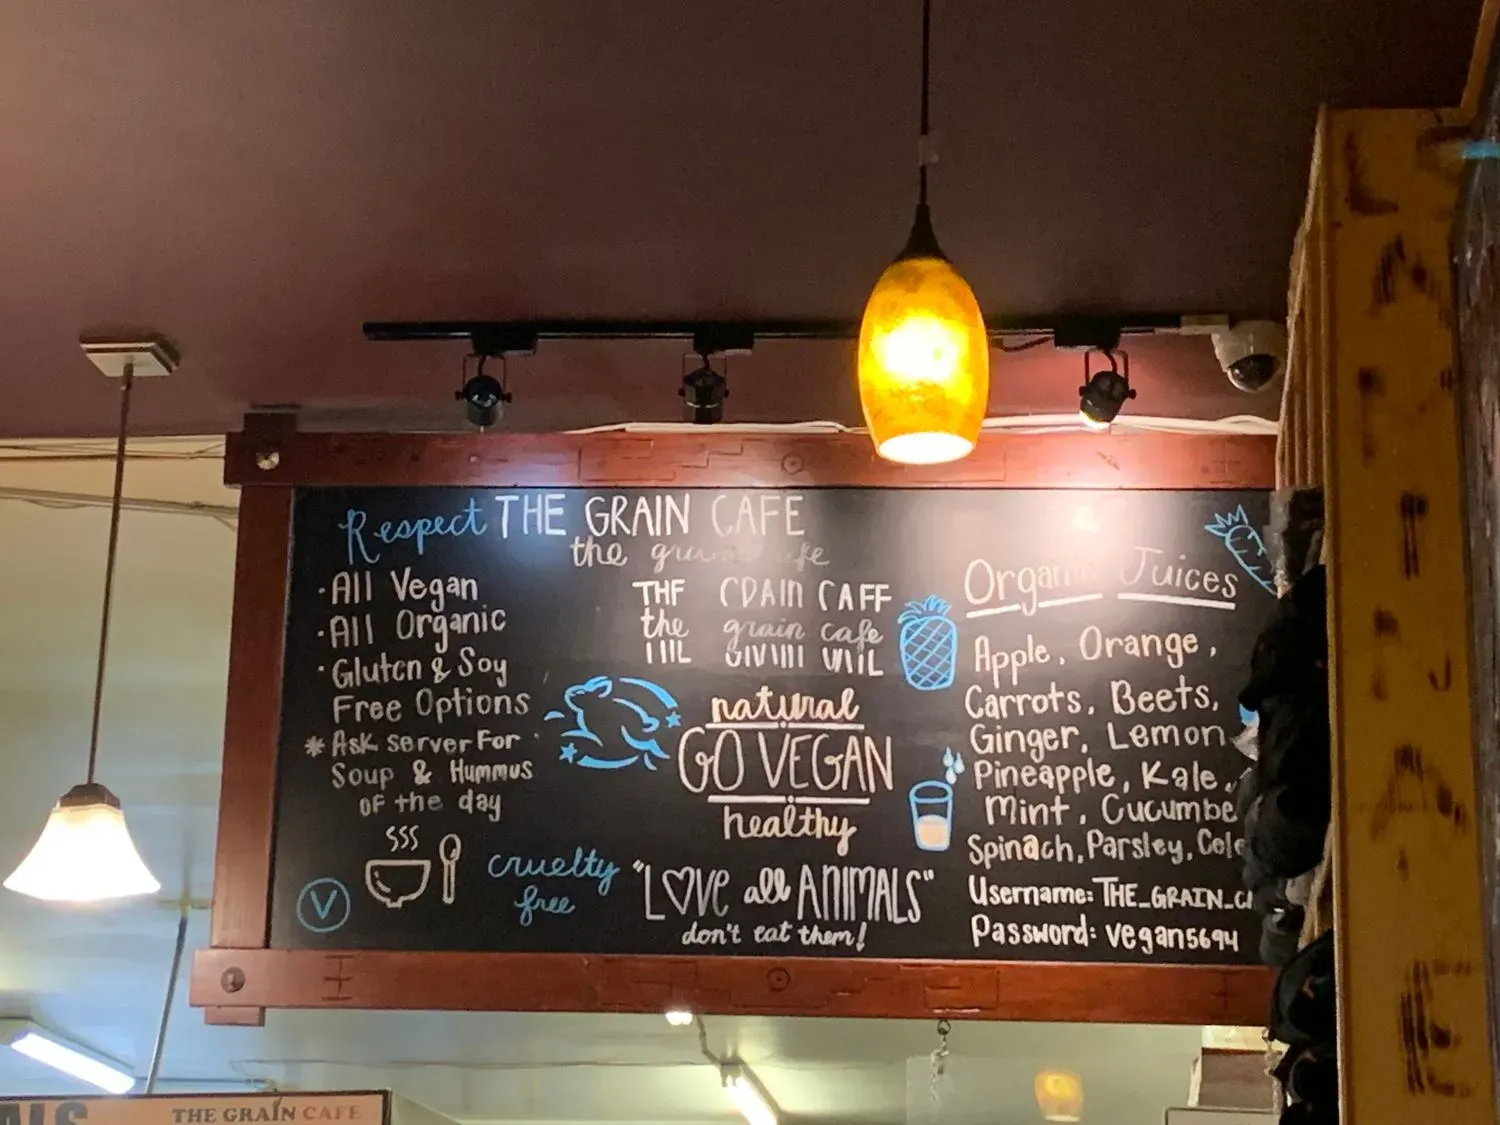 Respect THE GRAIN CAFE
the
· All Vegan
· All Organic
· Gluten & Soy
Free Options
* Ask server For
Soup & Hummus
OF the day
V
cruelty
free
the grain cafe
natural
GO VEGAN
healthy
"LOVE all ANIMALS"
don't eat them!
Juices
Apple, Orange,
Carrots, Beets,
Ginger, Lemon
Pineapple, Kale,
Mint, Cucumbe
Spinach, Parsley,
Username: THE_GRAIN_
Password: vegan5694
THE GRAIN CAFE